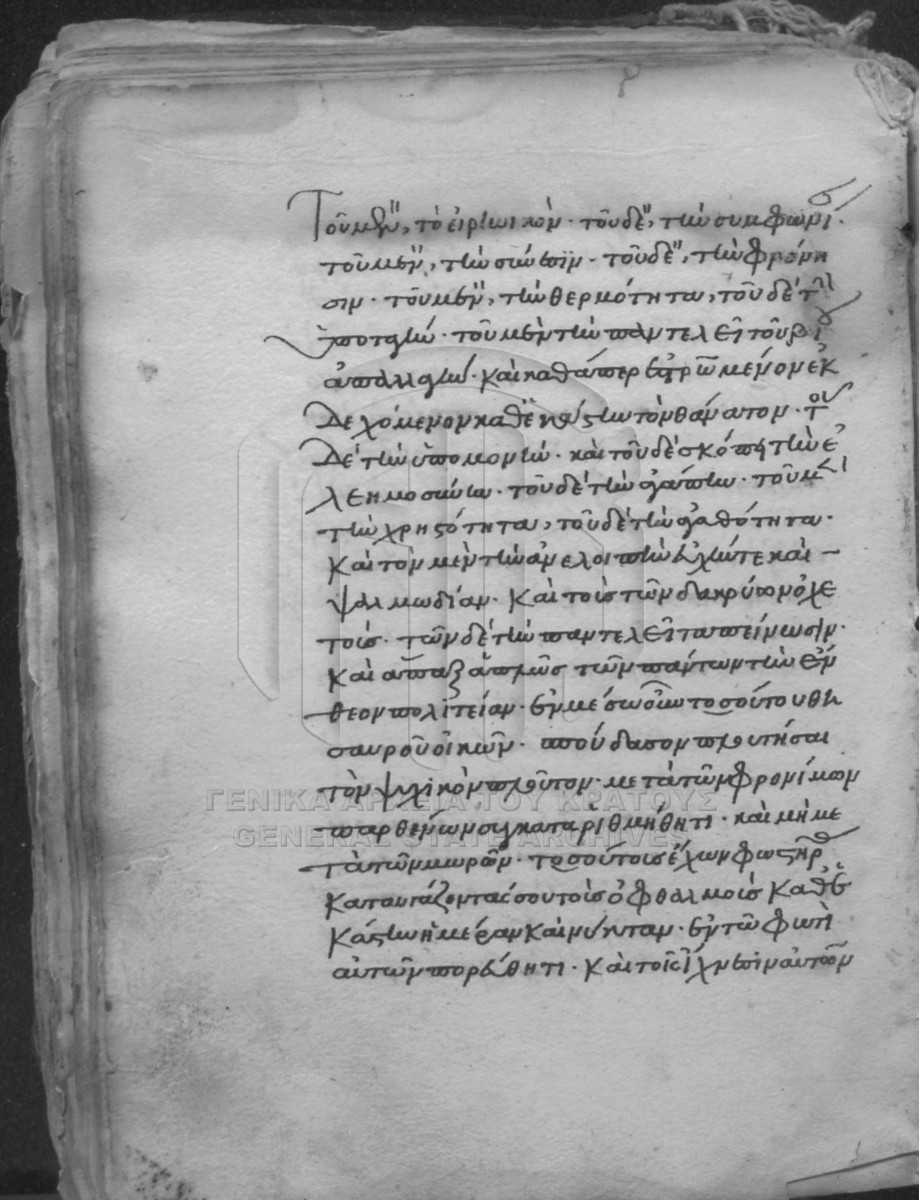 Τοῦ μὲν, τὸ εἰρηνικὸν· τοῦ δὲ, τὴν συμφωνί·
τοῦ μὲν, τὴν σιώπὴν· τοῦ δὲ, τὴν φρόνη
σιν· τοῦ μὲν, τὴν θερμότητα, τοῦ δὲ τὴν
τοῦ μὲν τὴν παντελεῖ τοῦ βί
καὶ καθάπερ μένον ἐκ
Δεχόμενον καθ' ἑκάστην τὸν θάνατον· τοῦ
Δὲ τὴν ὑπομονήν· καὶ τοῦ δὲ σκόπει τὴν ἐ
λεημοσύνην· τοῦ δὲ τὴν ἀγάπην· τοῦ μὲν
τὴν χρηστότητα, τοῦ δὲ τὴν ἀγαθότητα·
Καὶ τὸν μὲν τὴν ἀνελλοιπὴ εὐχήν τε καὶ
ψαλμωδίαν· Καὶ τοὺς τῶν δακρύων ὀχε
τούς· τῶν δὲ τὴν παντελεῖ ταπείνωσιν·
Καὶ ἅπαξ ἁπλῶς τῶν πάντων τὴν ἔν
θεον πολιτείαν· ἐν μέσω οὖν τοσούτου θη
σαυροῦ οἰκῶν· σπούδασον πλουτῆσαι
τὸν ψυχικὸν πλοῦτον· μετὰ τῶν φρονίμων
παρθένων συγκαταριθμήθητι· καὶ μὴ με
τὰ τῶν μωρῶν· τοσούτους ἔχων φωστῆρας
Καταυγάζοντας σου τοὺς ὀφθαλμοὺς Καθ' ἑ
Κάστην ἡμέραν Καὶ νύκταν· ἐν τῶ φωτὶ
αὐτῶν πορεύθητι· Καὶ τοῖς ἴχνεσιν αὐτῶν
ΓΕΝΙΚΑ ΑΡΧΕΙΑ ΤΟΥ ΚΡΑΤΟΥΣ
GENERAL STATE ARCHIVES